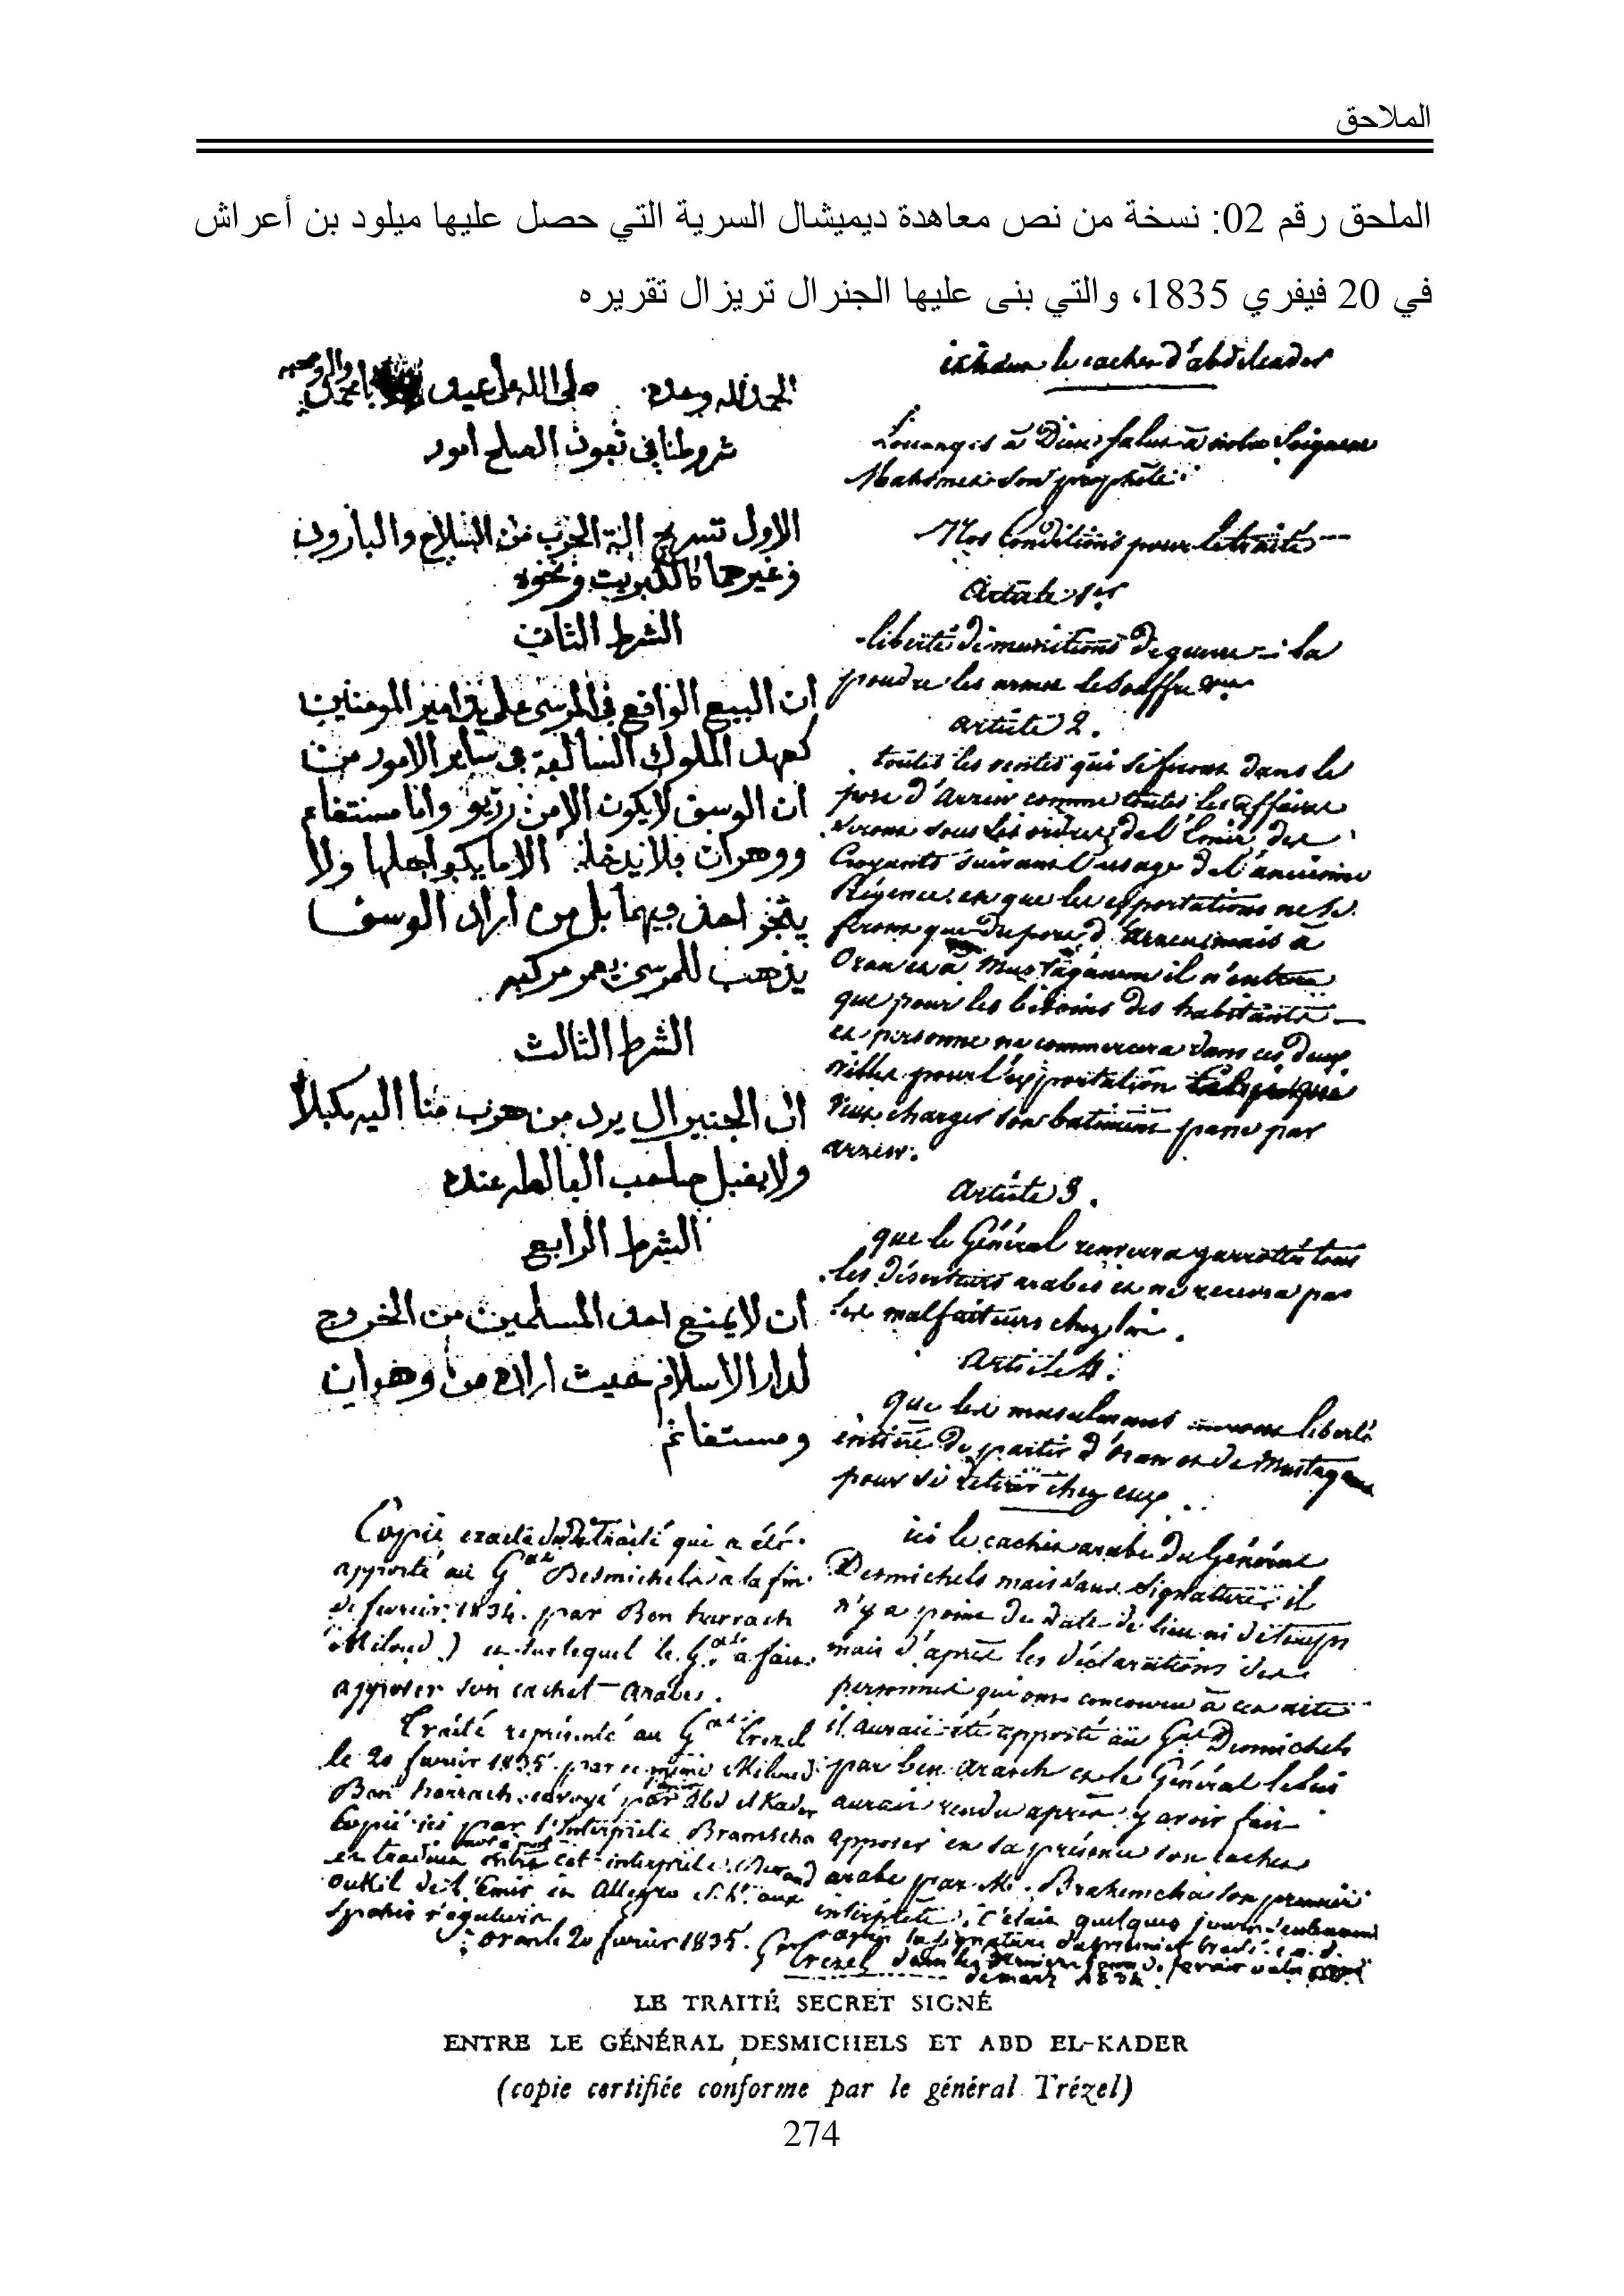 الملاحق
الملحق رقم 02: نسخة من نص معاهدة ديميشال السرية التي حصل عليها ميلود بن أعراش
في 20 فيفري 1835، والتي بنى عليها الجنرال تريزال تقريره
الحمد لله وحده صلى الله على
شروطنا في ثبوت الصلح أمور
الاول تسريح الة الحرب من السلاح والبارود
وغيرهما كالكبريت ونحوه
الشرط الثاني
ان البيع الواقع في المرسى على يد امير المومنين
كعهد الملوك السالفة في ساير الامور من
ان الوسق لا يكون الا من رزيو واما مستغانم
ووهران فلا يدخله الا ما يكفي اهلها ولا
احد فيهما بل من اراد الوسق
يذهب للمرسى يعمر مركبه
الشرط الثالث
ان الجنيرال يرد من هرب منا اليه مكبلا
ولا يقبل صاحب عنده
الشرط الرابع
ان لا يمنع احد المسلمين من الخروج
لدار الاسلام حيث اراد من وهران
ومستغانم
le cachet d'abdelcader
Louanges à Dieu, salut à notre Seigneur
Mahomet son prophète.
Nos Conditions pour le traité
Article 1er
liberté de munitions de guerre : la
poudre les armes le souffre
article 2.
toutes les ventes qui se feront dans le
port d'Arzew comme toutes les affaires
seront sous les ordres de l'Emir des
Croyants suivant l'usage de l'ancienne
Régence, et que les exportations ne se
feront que du port d'Arzew, mais à
Oran et à Mustaganem il n'entrera
que pour les besoins des habitants
et personne ne commercera dans ces deux
villes pour l'exportation
veut charger son batiment passe par
arzew.
Article 3.
que le Général renverra garrottés tous
les déserteurs arabes et ne recevra pas
les malfaiteurs chez lui.
Article 4.
que les musulmans auront liberté
entière de partir d'Oran et de Mustagan
pour se retirer chez eux.
Copie exacte du traité qui a été
apporté au Gal Desmichels à la fin
de fevrier 1834. par Ben harrach
(Miloud) et sur lequel le Gal a fait
apposer son cachet Arabe.
Traité représenté au Gal Trezel
le 20 fevrier 1835. par ce même Miloud
Ben harrach, envoyé par Abd el Kader
Copié ici par l'Interprète Bramscha
et traduit cet interprète,
oukil de l'Emir et Allegro aux
Spahis réguliers
Oran le 20 fevrier 1835.
Trezel
ici le cachet arabe du Général
Desmichels mais sans signature; il
n'y a point de date de lieu ni de temps
mais d'après les déclarations des
personnes qui ont concouru à cet acte
il aurait été apporté au Gal Desmichels
par ben Arach et le Général le lui
aurait rendu après y avoir fait
apposer en sa présence son cachet
arabe par M. Brahemcha son premier
interprète. C'était quelques jours
LE TRAITÉ SECRET SIGNÉ
ENTRE LE GÉNÉRAL DESMICHELS ET ABD EL-KADER
(copie certifiée conforme par le général Trézel)
274